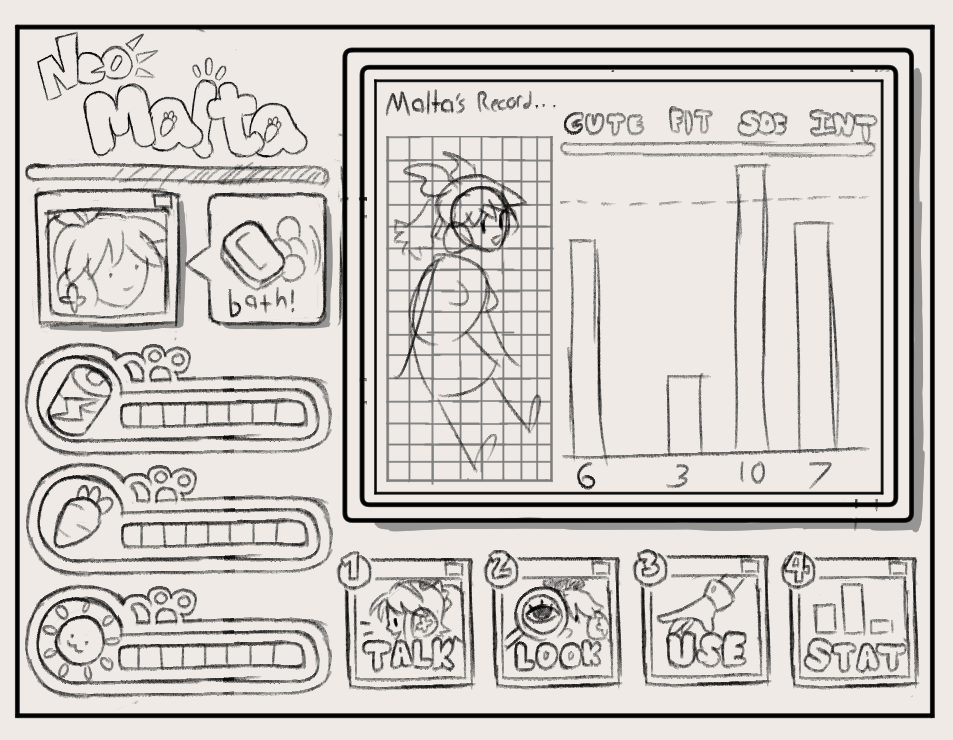 Neo
Malta
bath!
Malta's Record...
CUTE FIT SOC INT
6 3 10 7
1 2 3 4
TALK LOOK USE STAT